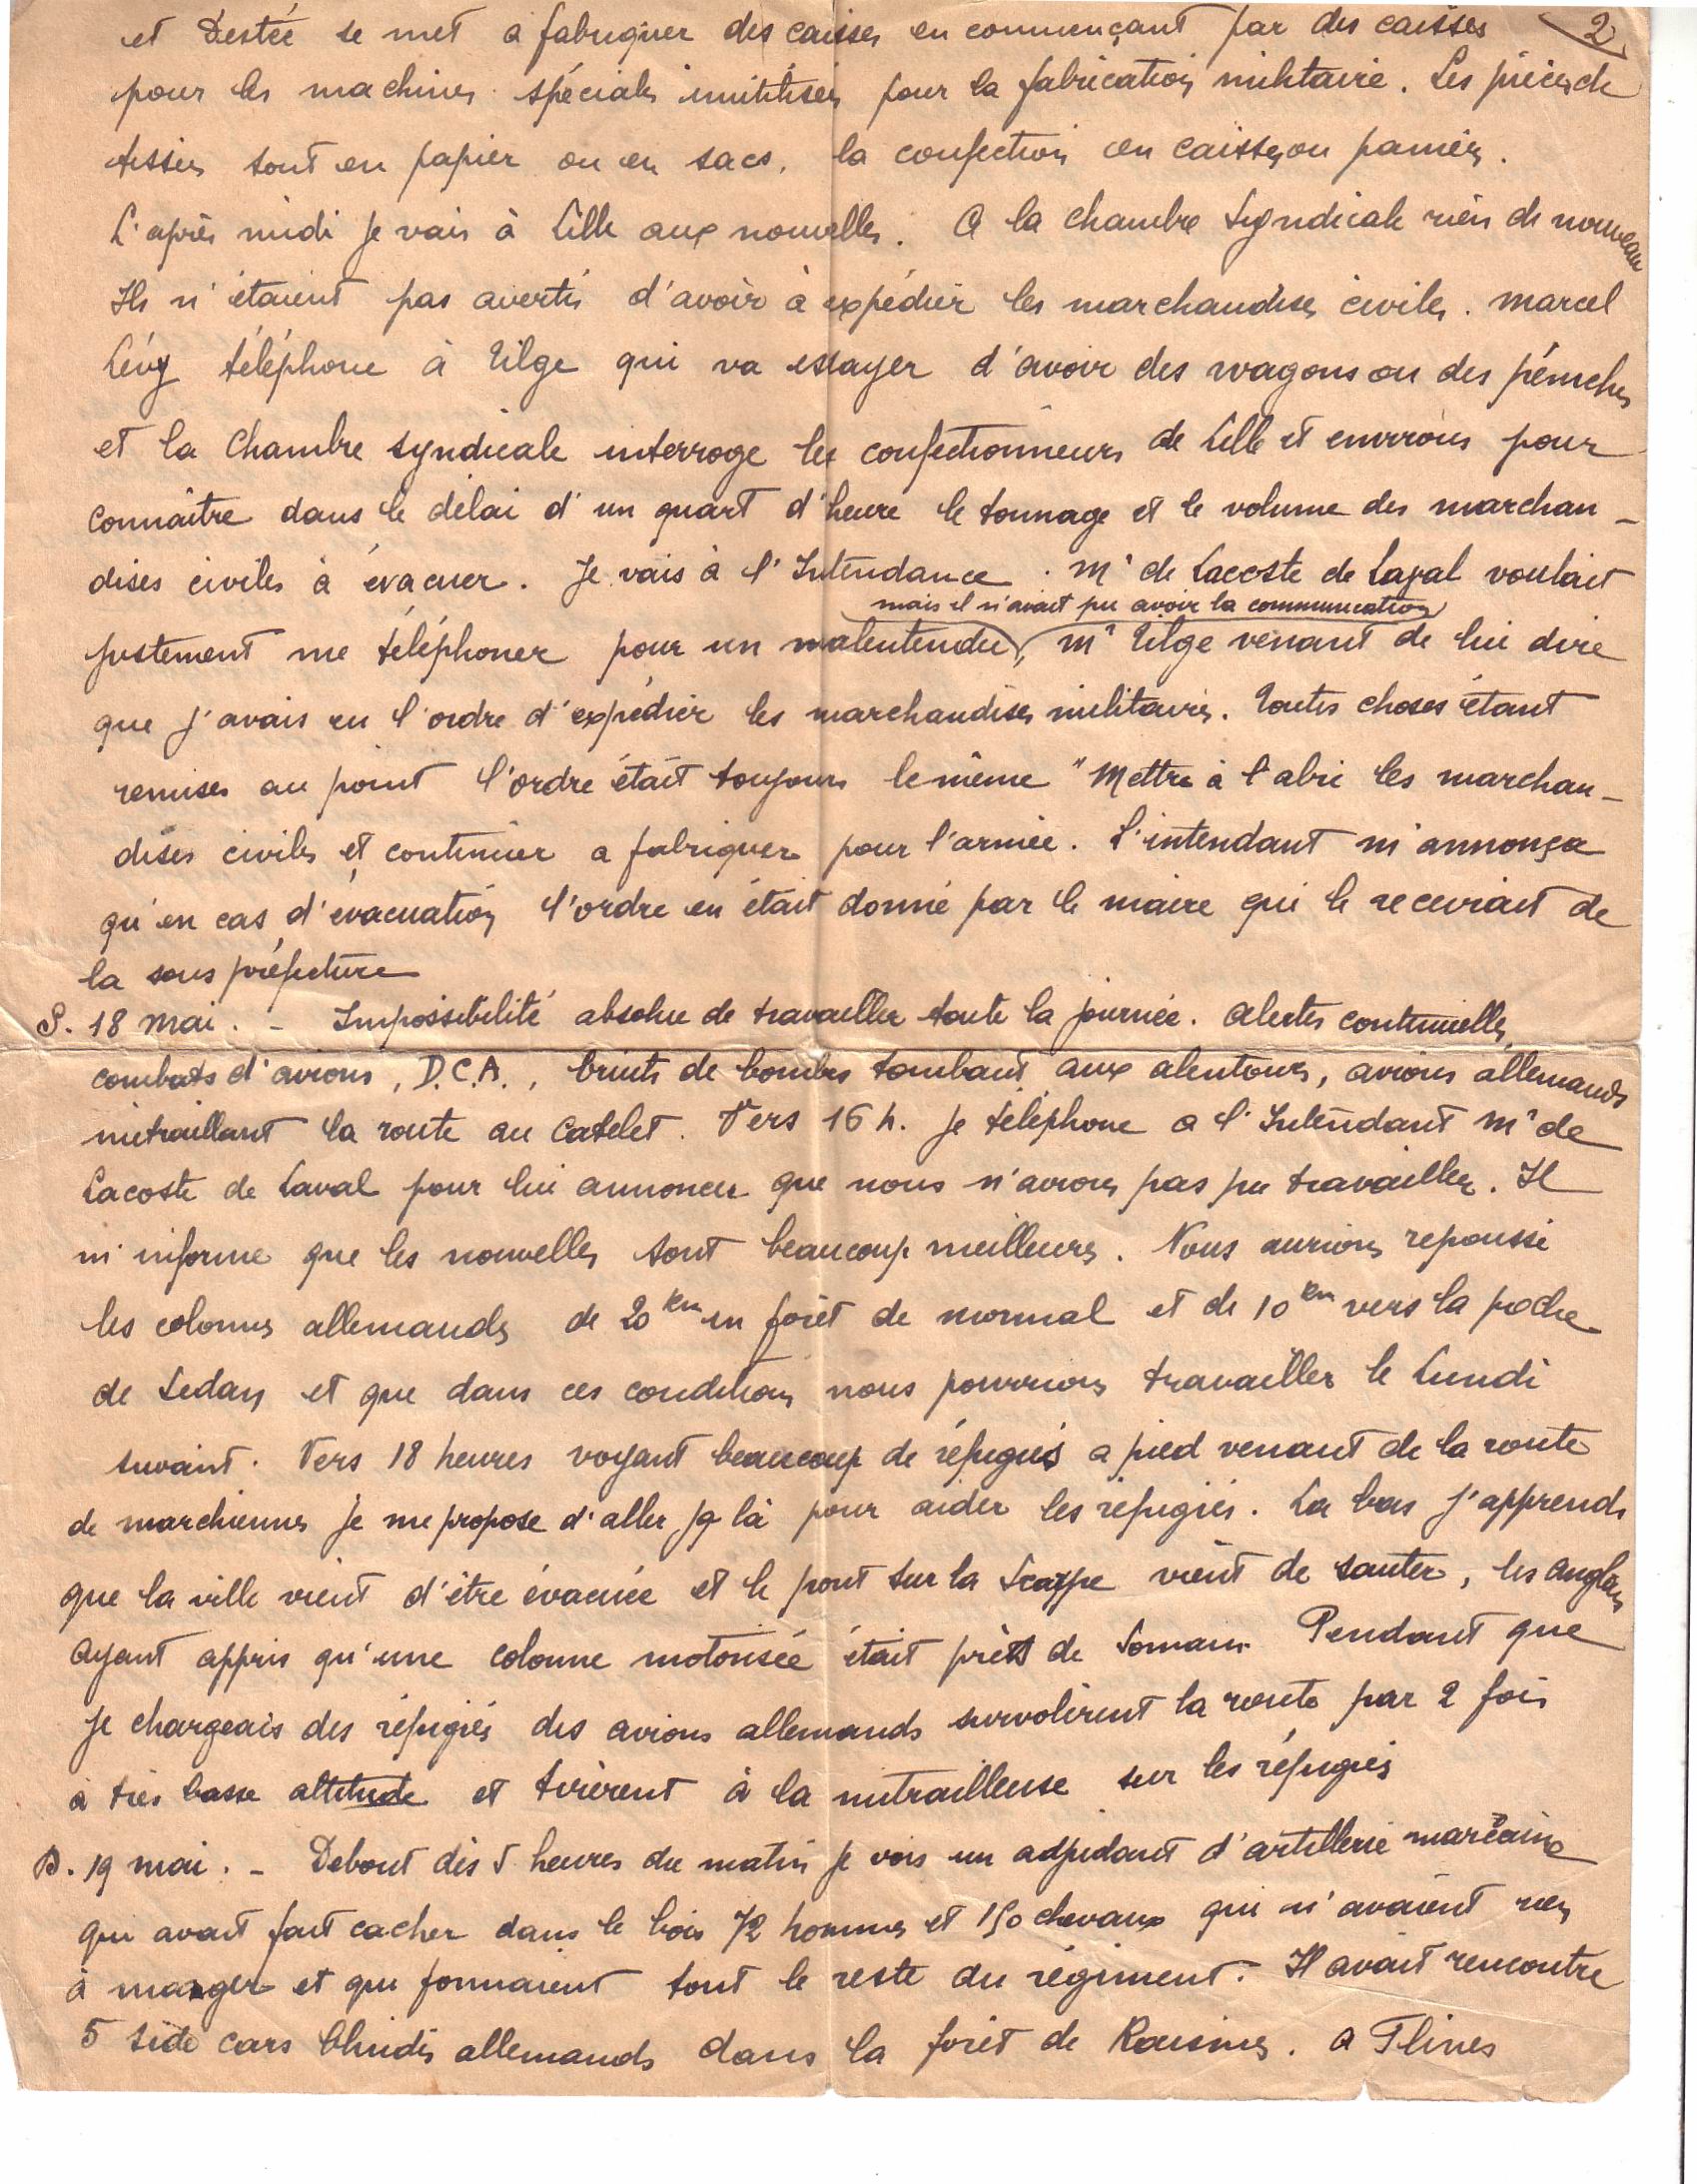 2
et Destée se met a fabriquer des caisses en commençant par des caisses
pour les machines spéciales inutilisées pour la fabrication militaire. Les pièces de
tissus sont en papier ou en sacs, la confection en caisses ou paniers.
L'après midi je vais à Lille aux nouvelles. A la chambre Syndicale rien de nouveau
Ils n'étaient pas avertis d'avoir à expédier les marchandises civiles. Marcel
Lévy téléphone à Tilge qui va essayer d'avoir des wagons ou des péniches
et la Chambre syndicale interroge les confectionneurs de Lille et environs pour
connaître dans le délai d'un quart d'heure le tonnage et le volume des marchan-
dises civiles à évacuer. Je vais à l'Intendance. Mr de Lacoste de Laval voulait
mais il n'avait pu avoir la communication
justement me téléphoner pour un malentendu, Mr Tilge venant de lui dire
que j'avais eu l'ordre d'expédier les marchandises militaires. Toutes choses étant
remises au point l'ordre était toujours le même "Mettre à l'abri les marchan-
dises civiles et continuer a fabriquer pour l'armée. L'intendant m'annonça
qu'en cas d'évacuation l'ordre en était donné par le maire qui le recevrait de
la sous préfecture
S. 18 mai. - Impossibilité absolue de travailler toute la journée. Alertes continuelles,
combats d'avions, D.C.A., bruits de bombes tombant aux alentours, avions allemands
mitraillant la route au Catelet. Vers 16 h. je téléphone a l'Intendant Mr de
Lacoste de Laval pour lui annoncer que nous n'avions pas pu travailler. Il
m'informe que les nouvelles sont beaucoup meilleures. Nous aurions repoussé
les colonnes allemandes de 20 km en forêt de mormal et de 10 km vers la poche
de Sedan et que dans ces conditions nous pourrions travailler le Lundi
suivant. Vers 18 heures voyant beaucoup de réfugiés a pied venant de la route
de marchiennes je me propose d'aller jq là pour aider les réfugiés. La bas j'apprends
que la ville vient d'être évacuée et le pont sur la Scarpe vient de sauter, les anglais
ayant appris qu'une colonne motorisée était près de Somain. Pendant que
je chargeais des réfugiés des avions allemands survolèrent la route par 2 fois
à très basse altitude et tirèrent à la mitrailleuse sur les réfugiés
D. 19 mai. - Debout dès 5 heures du matin je vois un adjudant d'artillerie marocaine
qui avait fait cacher dans le bois 72 hommes et 150 chevaux qui n'avaient rien
à manger et qui formaient tout le reste du régiment. Il avait rencontré
5 side cars blindés allemands dans la forêt de Raismes. A Flines